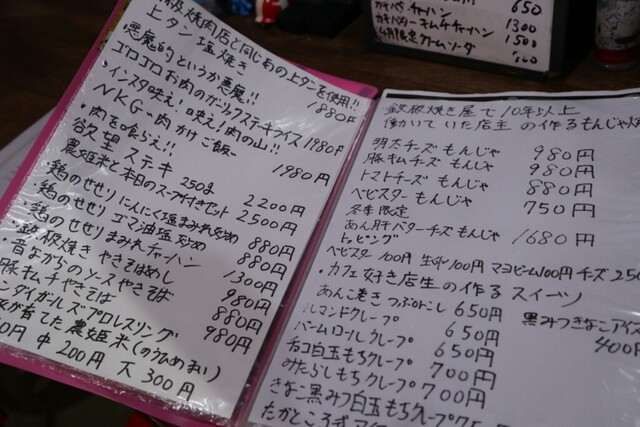 650
キムチチャーハン 1300
1500
級焼肉店と同じあの上タンを使用!!
上タン塩焼き 1880円
悪魔的というか悪魔!!
ゴロゴロお肉のガーリックステーキライス 1980円
インスタ映え!映え!肉の山!!
NKG〜肉かけご飯〜 1980円
・肉を喰らえ!!
欲望ステーキ 250g 2200円
農姫米と本日のスープ付きセット 2500円
・鶏のせせり にんにく塩まみれ炒め 880円
・鶏のせせり ゴマ油塩炒め 880円
・鶏のせせりまみれチャーハン 1300円
・鉄板焼き やきそばめし 980円
・昔ながらのソースやきそば 880円
豚キムチやきそば 980円
ガールズプロレスリング
が育てた農姫米(のうひめまい)
中 200円 大 300円
鉄板焼き屋で10年以上
働いていた店主の作るもんじゃ
明太チーズもんじゃ 980円
豚キムチーズもんじゃ 980円
トマトチーズもんじゃ 880円
ベビスターもんじゃ 750円
冬季限定
あん肝バターチーズもんじゃ 1680円
トッピング
ベビスター100円 生卵100円 マヨビーム100円 チーズ250
・カフェ好き店主の作るスイーツ
あんこ巻き つぶorこし 650円
ルマンドクレープ 650円
バームロールクレープ 650円
チョコ白玉もちクレープ 700円
みたらしもちクレープ 700円
きなこ黒みつ白玉もちクレープ 75
黒みつきなこアイス
400円